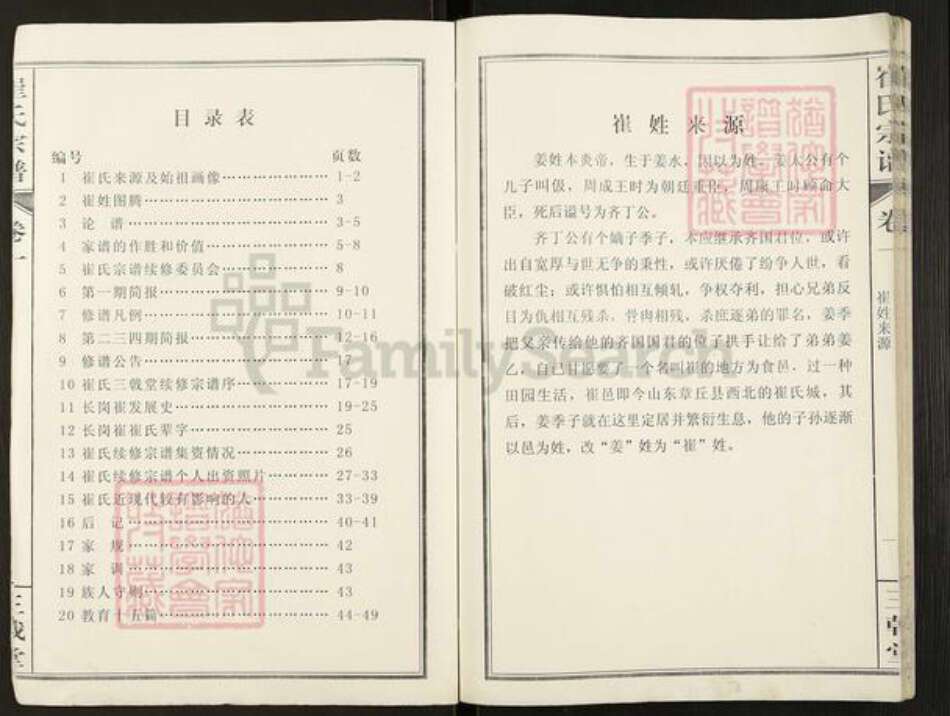 目录表
编号 页数
1 崔氏来源及始祖画像 1-2
2 崔姓图腾 3
3 论 谱 3-5
4 家谱的作胜和价值 5-8
5 崔氏宗谱续修委员会 8
6 第一期简报 9-10
7 修谱凡例 10-11
8 第二三四期简报 12-16
9 修谱公告 17
10 崔氏三戟堂续修宗谱序 17-19
11 长岗崔发展史 19-25
12 长岗崔崔氏辈字 25
13 崔氏续修宗谱集资情况 26
14 崔氏续修宗谱个人出资照片 27-33
15 崔氏近现代较有影响的人 33-39
16 后 记 40-41
17 家 规 42
18 家 训 43
19 族人守则 43
20 教育十五篇 44-49
崔氏宗谱
卷一
三戟堂
崔姓来源
姜姓本炎帝，生于姜水，因以为姓。姜太公有个
儿子叫伋，周成王时为朝廷重臣，周康王时顾命大
臣，死后谥号为齐丁公。
齐丁公有个嫡子季子，本应继承齐国君位，或许
出自宽厚与世无争的秉性，或许厌倦了纷争人世，看
破红尘；或许惧怕相互倾轧，争权夺利，担心兄弟反
目为仇相互残杀，骨肉相残，杀庶逐弟的罪名，姜季
把父亲传给他的齐国国君的位子拱手让给了弟弟姜
乙，自己甘愿要了一个名叫崔的地方为食邑，过一种
田园生活，崔邑即今山东章丘县西北的崔氏城，其
后，姜季子就在这里定居并繁衍生息，他的子孙逐渐
以邑为姓，改“姜”姓为“崔”姓。
崔氏宗谱
卷一
崔姓来源
一
三戟堂
FamilySearch